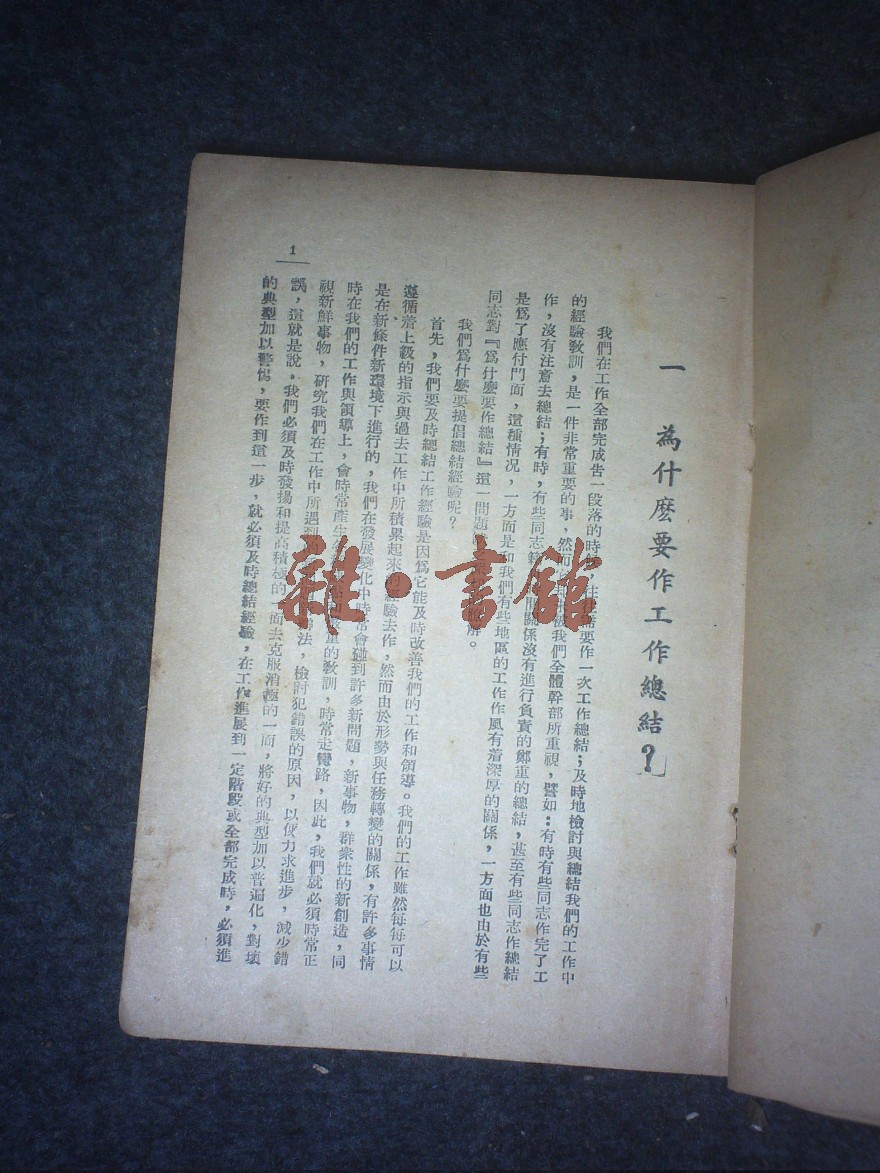 一 為什麽要作工作總結？
我們在工作全部完成告一段落的時候，往往需要作一次工作總結；及時地檢討與總結我們的工作中
的經驗教訓，是一件非常重要的事，然而 我們全體幹部所重視，譬如：有時有些同志作完了工
作，沒有注意去總結；有時，有些同志 關係沒有進行負責的鄭重的總結，甚至有些同志作總結
是爲了應付門面，這種情况，一方面是和我們有些地區的工作作風有着深厚的關係，一方面也由於有些
同志對『爲什麽要作總結』這一問題 解。
我們爲什麽要提倡總結經驗呢？
首先，我們要及時總結工作經驗是因爲它能及時改善我們的工作和領導。我們的工作雖然每每可以
遵循着上級的指示與過去工作中所積累起來的經驗去作，然而由於形勢與任務轉變的關係，有許多事情
是在新條件新環境下進行的，我們在發展變化中時常會碰到許多新問題，新事物，群衆性的新創造，同
時在我們的工作與領導上，會時常產生 重的教訓，時常走彎路，因此，我們就必須時常正
視新鮮事物，研究我們在工作中所遇到 法，檢討犯錯誤的原因，以便力求進步，減少錯
誤，這就是說。我們必須及時發揚和提高積極的一面去克服消極的一面，將好的典型加以普遍化，對壞
的典型加以警惕，要作到這一步，就必須及時總結經驗，在工作進展到一定階段或全部完成時，必須進
1
雜·書館